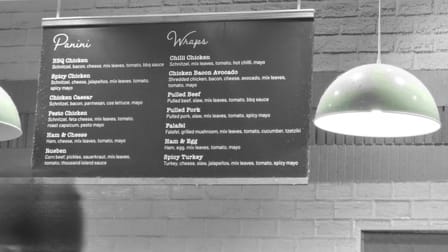 Panini
BBQ Chicken
Schnitzel, bacon, cheese, mix leaves, tomato, bbq sauce
Spicy Chicken
Schnitzel, cheese, jalapeños, mix leaves, tomato,
spicy mayo
Chicken Caesar
Schnitzel, bacon, parmesan, cos lettuce, mayo
Pesto Chicken
Schnitzel, feta cheese, mix leaves, tomato,
roast capsicum, pesto mayo
Ham & Cheese
Ham, cheese, mix leaves, tomato, mayo
Rueben
Corn beef, pickles, sauerkraut, mix leaves,
tomato, thousand island sauce
Wraps
Chilli Chicken
Schnitzel, mix leaves, tomato, hot chilli, mayo
Chicken Bacon Avocado
Shredded chicken, bacon, cheese, avocado, mix leaves,
tomato, mayo
Pulled Beef
Pulled beef, slaw, mix leaves, tomato, bbq sauce
Pulled Pork
Pulled pork, slaw, mix leaves, tomato, spicy mayo
Falafel
Falafel, grilled mushroom, mix leaves, tomato, cucumber, tzatziki
Ham & Egg
Ham, egg, mix leaves, tomato, mayo
Spicy Turkey
Turkey, cheese, slaw, jalapeños, mix leaves, tomato, spicy mayo